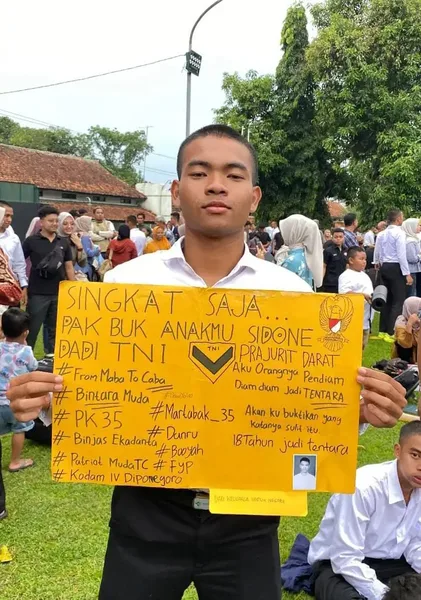 SINGKAT SAJA...
PAK BUK ANAKMU SIDONE
DADI TNI
TNI
PRAJURIT DARAT
Aku Orangnya Pendiam
Diam diam Jadi TENTARA
Akan ku buktikan yang
Katanya sulit itu
18 Tahun jadi tentara
# From Maba To Caba
# Bintara Muda
# PK 35
# Binjas Ekadanta
# Patriot MudaTC
# Kodam IV Diponegoro
# Martabak_35
# Danru
# Booyah
# FYP